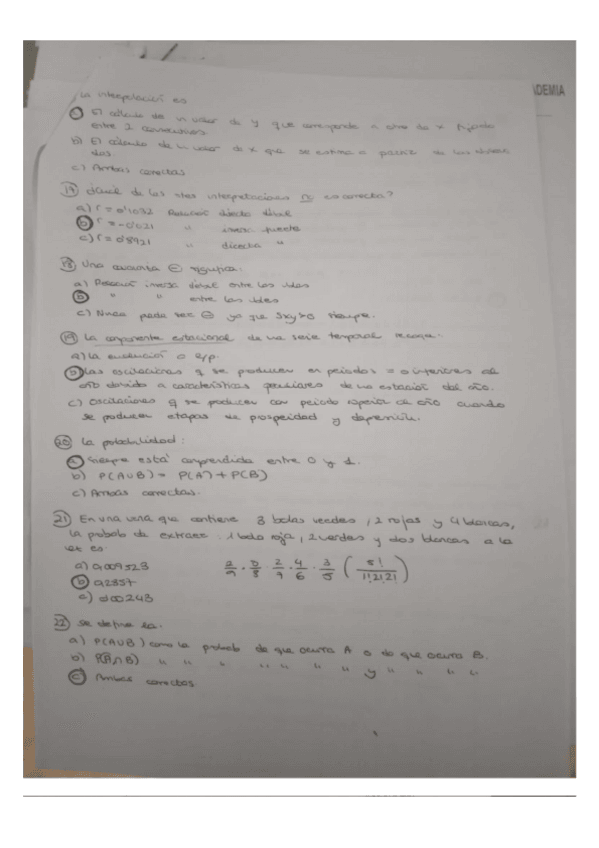 ADEMIA
La interpolación es
a) El cálculo de un valor de y que corresponde a otro de x fijado
entre 2 consecutivos.
b) El cálculo de un valor de x que se estima a partir de los
dos.
c) Ambas correctas
17) ¿Cuál de las stes interpretaciones no es correcta?
a) r = 0'1032 Relación directa débil
b) r = -0'021 " inversa fuerte
c) r = 0'8921 " directa "
18) Una covarianza ⊖ significa:
a) Relación inversa débil entre las vbles
b) " " entre las vbles
c) Nunca puede ser ⊖ ya que Sxy>0 siempre.
19) La componente estacional de una serie temporal recoge:
a) La evolución a l/p.
b) Las oscilaciones q se producen en periodos = o inferiores al
año debido a características peculiares de una estación del año.
c) Oscilaciones q se producen con periodo superior al año cuando
se producen etapas de prosperidad y depresión.
20) La probabilidad:
a) Siempre está comprendida entre 0 y 1.
b) P(AUB) = P(A) + P(B)
c) Ambas correctas.
21) En una urna que contiene 3 bolas verdes, 2 rojas y 4 blancas,
la probab de extraer: 1 bola roja, 2 verdes y dos blancas a la
vez es:
a) 0,009523 2/9 · 3/8 · 2/7 · 4/6 · 3/5 (5!/1!2!2!)
b) 0,2857
c) 0'00243
22) Se define la:
a) P(AUB) como la probab de que ocurra A o de que ocurra B.
b) P(A∩B) " " " " " " " y " " "
c) Ambas correctas